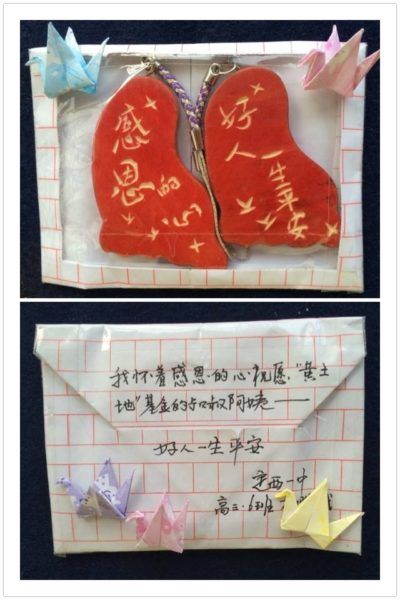 感恩的心
好人一生平安
我怀着感恩的心祝愿"黄土
地"基金的叔叔阿姨——
好人一生平安
西一中
高三·6班